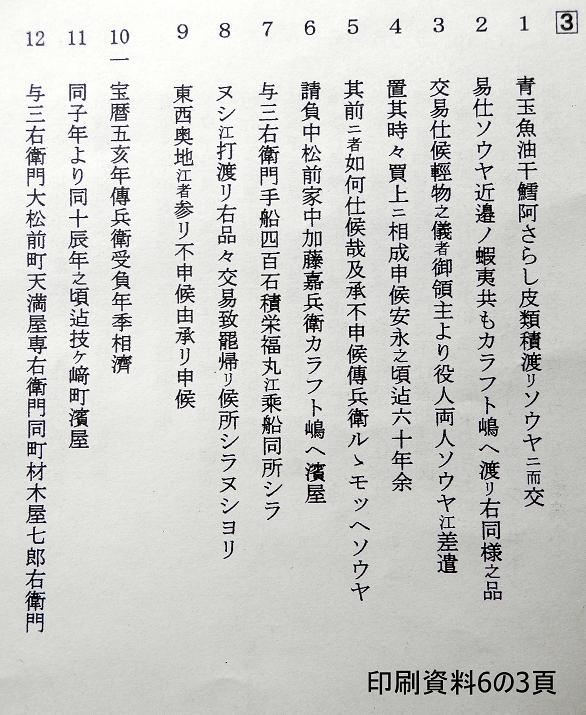 3
1 青玉魚油干鱈阿さらし皮類積渡リソウヤニ而交
2 易仕ソウヤ近邉ノ蝦夷共もカラフト嶋へ渡リ右同様之品
3 交易仕候輕物之儀者御領主より役人両人ソウヤ江差遣
4 置其時々買上ニ相成申候安永之頃迠六十年余
5 其前ニ者如何仕候哉及承不申候傳兵衛ルヽモッヘソウヤ
6 請負中松前家中加藤嘉兵衛カラフト嶋へ濱屋
7 与三右衛門手船四百石積栄福丸江乘船同所シラ
8 ヌシ江打渡リ右品々交易致罷帰リ候所シラヌシヨリ
9 東西奥地江者参リ不申候由承リ申候
10 一宝暦五亥年傳兵衛受負年季相濟
11 同子年より同十辰年之頃迠技ケ﨑町濱屋
12 与三右衛門大松前町天満屋専右衛門同町材木屋七郎右衛門
印刷資料6の3頁